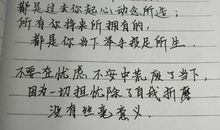 都是过去你起心动念所造；
所有你将来所拥有的，
都是你当下举手投足所生．
不要在忧虑不安中荒废了当下，
因为一切担忧除了自我折磨
没有些毫意义．